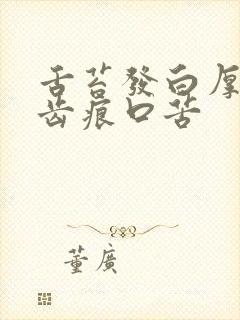 舌苔發白厚
齒痕口苦
董廣